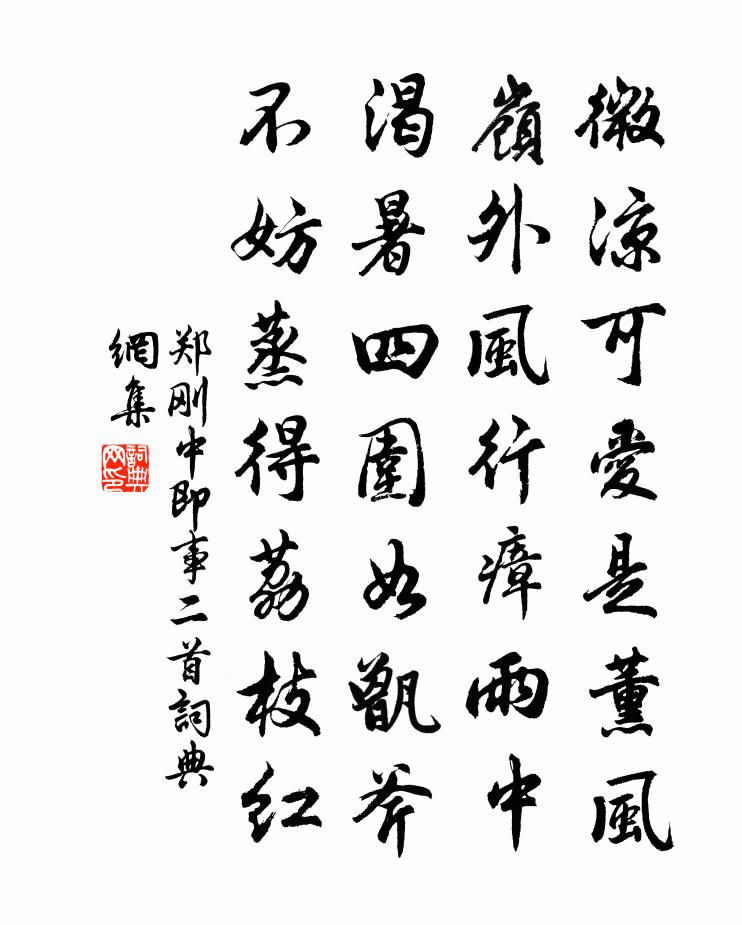 微涼可愛是薰風
嶺外風行瘴雨中
渴暑四圍如甑斧
不妨蒸得荔枝红
郑刚中即事二首詞典
網集
詞典网印